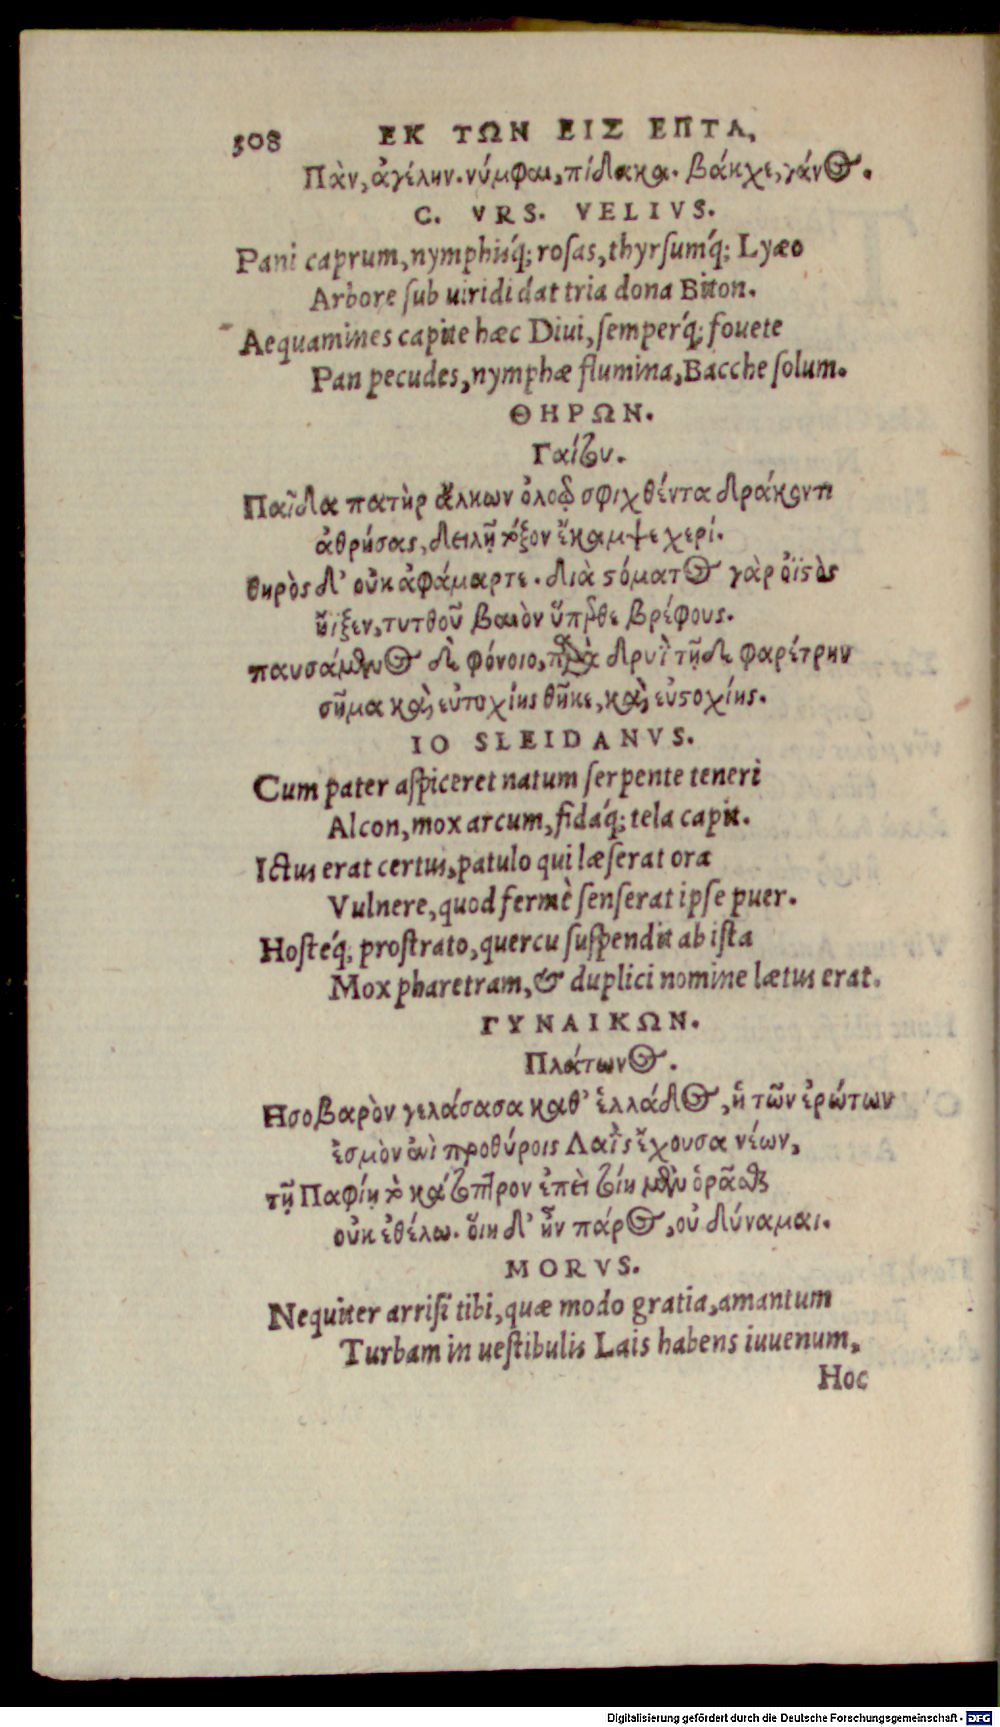 308 ΕΚ ΤΩΝ ΕΙΣ ΕΠΤΑ,
Πὰν, ἀγέλην. νύμφαι, πίδακα. βάκχε, γάνος.
C. VRS. VELIVS.
Pani caprum, nymphisq́; roſas, thyrſumq́; Lyæo
Arbore ſub uiridi dat tria dona Biton.
Aequamines capite hæc Diui, ſemperq́; fouete
Pan pecudes, nymphæ flumina, Bacche ſolum.
ΘΗΡΩΝ.
Γαίτου.
Παῖδα πατὴρ ἄλκων ὀλοῷ σφιχθέντα δράκοντι
ἀθρήσας, δειλῇ τόξον ἔκαμψε χερί.
θηρὸς δ' οὐκ ἀφάμαρτε. διὰ στόματος γὰρ ὀϊστὸς
ἤϊξεν, τυτθοῦ βαιὸν ὕπερθε βρέφους.
παυσάμενος δὲ φόνοιο, παρὰ δρυῒ τῇδε φαρέτρην
σῆμα καὶ εὐτυχίης θῆκε, καὶ εὐστοχίης.
IO SLEIDANVS.
Cum pater aſpiceret natum ſerpente teneri
Alcon, mox arcum, fidaq́; tela capit.
Ictus erat certus, patulo qui læſerat ora
Vulnere, quod fermè ſenſerat ipſe puer.
Hoſteq́; proſtrato, quercu ſuſpendit ab iſta
Mox pharetram, & duplici nomine lætus erat.
ΓΥΝΑΙΚΩΝ.
Πλάτωνος.
Ησοβαρὸν γελάσασα καθ' ἑλλάδος, ἡ τῶν ἐρώτων
ἑσμὸν ἐνὶ προθύροις Λαῒς ἔχουσα νέων,
τῇ Παφίῃ τὸ κάτοπτρον ἐπεὶ τοίη μὲν ὁρᾶσθαι
οὐκ ἐθέλω. ὅιη δ' ἦν πάρος, οὐ δύναμαι.
MORVS.
Nequiter arriſi tibi, quæ modo gratia, amantum
Turbam in ueſtibulis Lais habens iuuenum,
Hoc
Digitalisierung gefördert durch die Deutsche Forschungsgemeinschaft - DFG